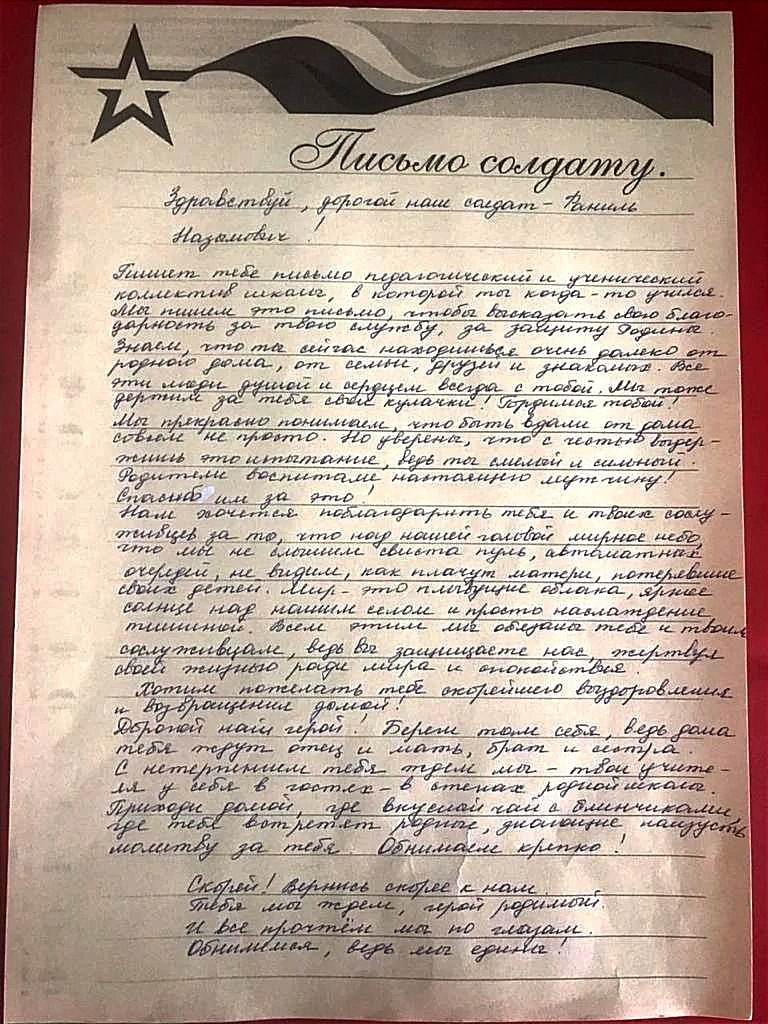 Письмо солдату.
Здравствуй, дорогой наш солдат – Раниль
Назымович!
Пишет тебе письмо педагогический и ученический
коллектив школы, в которой ты когда-то учился.
Мы пишем это письмо, чтобы высказать свою благо-
дарность за твою службу, за защиту Родины.
Знаем, что ты сейчас находишься очень далеко от
родного дома, от семьи, друзей и знакомых. Все
эти люди душой и сердцем всегда с тобой. Мы тоже
держим за тебя свои кулачки! Гордимся тобой!
Мы прекрасно понимаем, что быть вдали от дома
совсем не просто. Но уверены, что с честью выдер-
жишь это испытание, ведь ты смелый и сильный.
Родители воспитали настоящего мужчину!
Спасибо им за это!
Нам хочется поблагодарить тебя и твоих сослу-
живцев за то, что над нашей головой мирное небо,
что мы не слышим свиста пуль, автоматных
очередей, не видим, как плачут матери, потерявшие
своих детей. Мир – это плывущие облака, яркое
солнце над нашим селом и просто наслаждение
тишиной. Всем этим мы обязаны тебе и твоим
сослуживцам, ведь вы защищаете нас, жертвуя
своей жизнью ради мира и спокойствия.
Хотим пожелать тебе скорейшего выздоровления
и возвращения домой!
Дорогой наш герой! Береги там себя, ведь дома
тебя ждут отец и мать, брат и сестра.
С нетерпением тебя ждем мы – твои учите-
ля у себя в гостях – в стенах родной школы.
Приходи домой, где вкусный чай с блинчиками,
где тебя встретят родные, знающие наизусть
молитву за тебя. Обнимаем крепко!
Скорей! Вернись скорее к нам.
Тебя мы ждем, герой родимый.
И все прочтём мы по глазам.
Обнимемся, ведь мы едины!